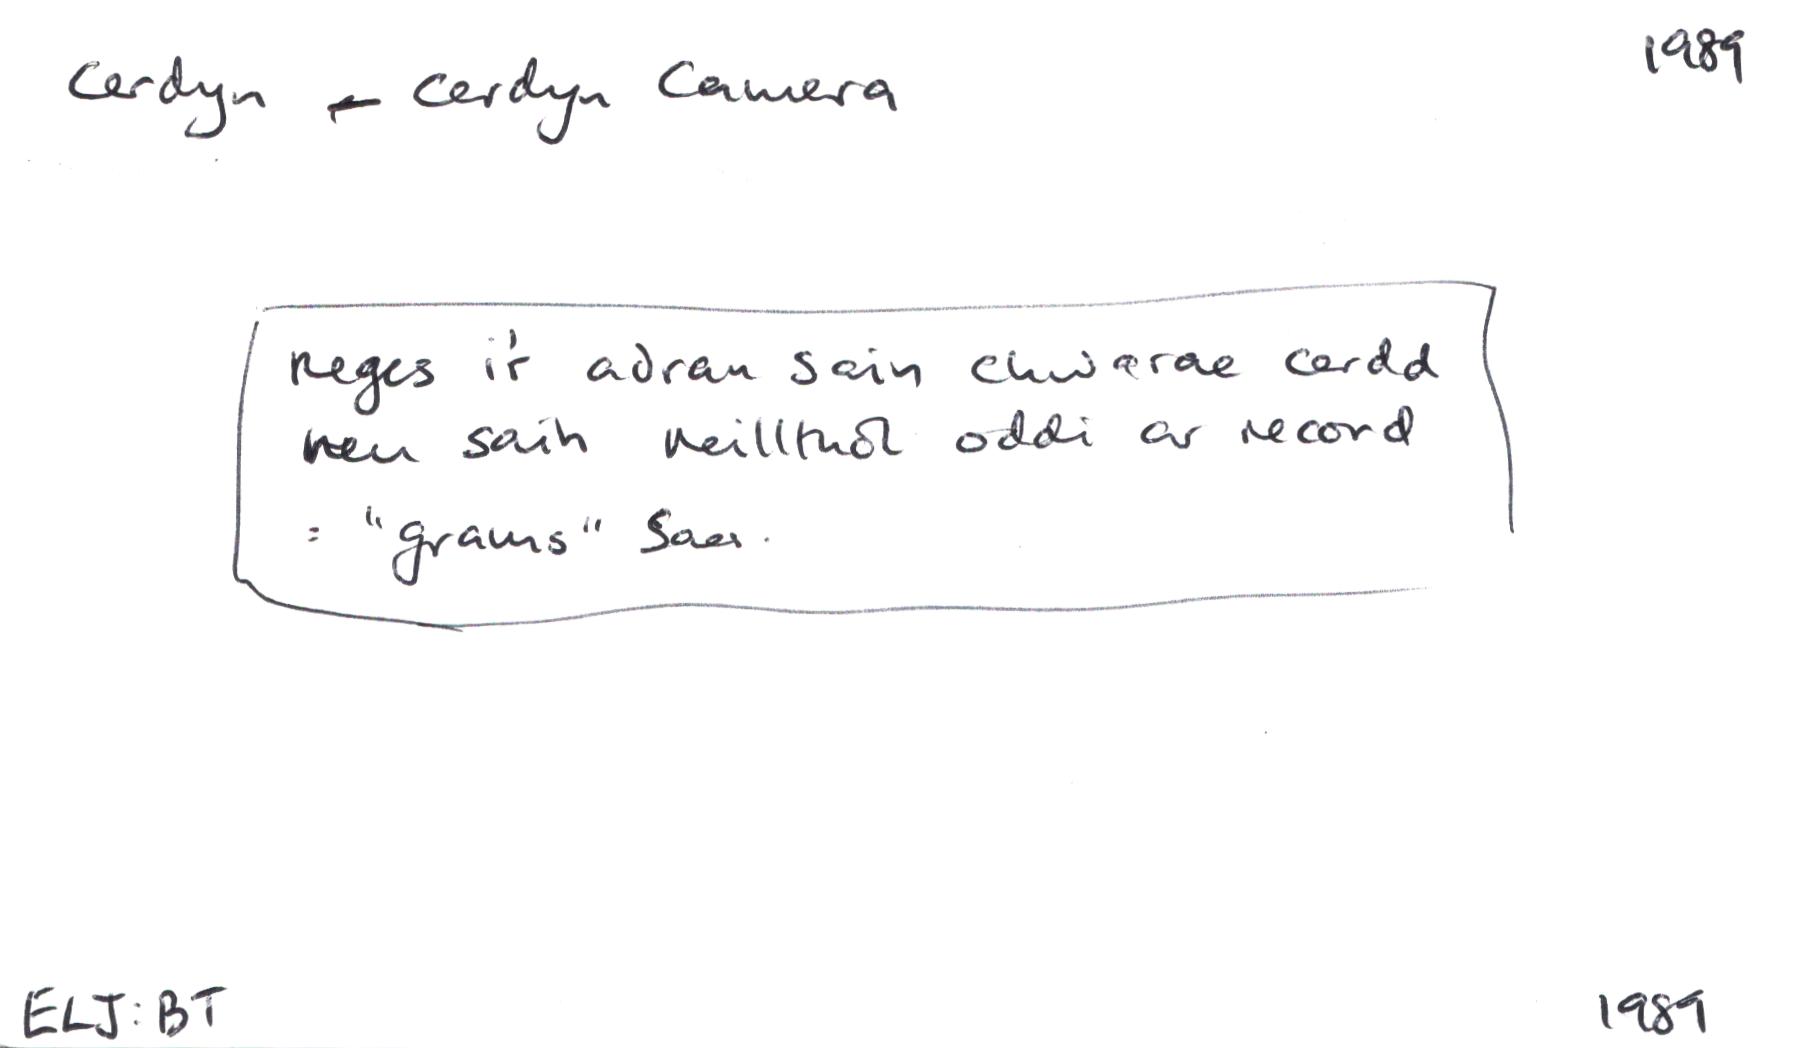 Cerdyn - cerdyn Camera
1989
neges i'r adran sain chwarae cerdd
neu sain neilltuol oddi ar record
= "grams" Saes.
ELJ: BT
1989